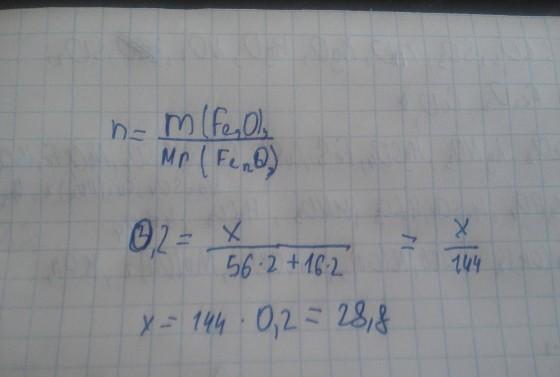 n = m(Fe₂O)₂ / Mr(Fe₂O₂)
0,2 = x / 56·2 + 16·2 = x / 144
x = 144 · 0,2 = 28,8